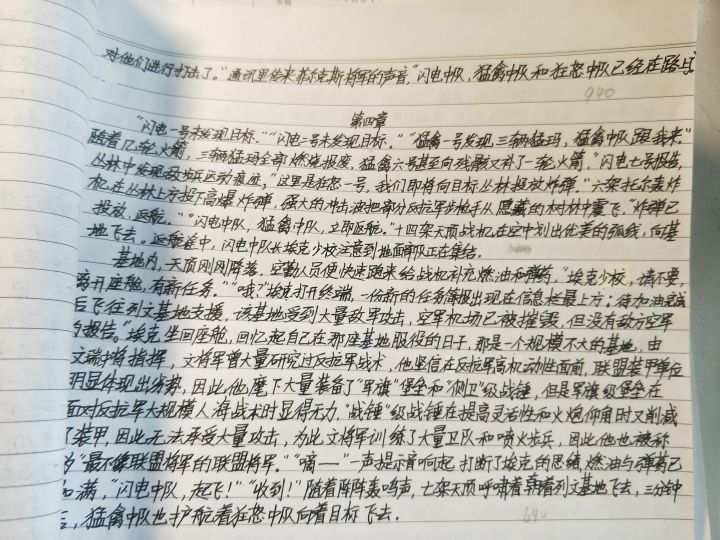 对他们进行打击了。”通讯里传来菲尼克斯将军的声音，“闪电中队，猛禽中队和狂怒中队已经在路上
940
第四章
“闪电一号未发现目标。”“闪电二号未发现目标。”“猛禽一号发现三辆猛玛，猛禽中队跟我来。”
随着几轮火箭，三辆猛玛全部燃烧报废，猛禽六号甚至向残骸又补了一轮火箭。“闪电七号报告，
丛林中发现敌步兵运动痕迹，”“这里是狂怒一号，我们即将向目标丛林投放炸弹。”六架托尔轰炸
机在丛林上方投下高爆炸弹，强大的冲击波把部分反抗军步枪手从隐藏的树林中震飞。“炸弹已
投放，返航。”“闪电中队，猛禽中队，立即返航。”十四架天顶战机在空中划出优美的弧线，向基
地飞去。返航途中，闪电中队长埃克少校注意到地面部队正在集结。
基地内，天顶刚刚降落，空勤人员便快速跑来给战机补充燃油和弹药，“埃克少校，请不要
离开座舱，有新任务。”“哦？”埃克打开终端，一份新的任务简报出现在信息栏最上方：待加油完成
后飞往列文基地支援，该基地受到大量敌军攻击，空军机场已被摧毁，但没有敌方空军
的报告。”埃克坐回座舱，回忆起自己在那座基地服役的日子，那是一个规模不大的基地，由
文端将指挥，文将军曾大量研究过反抗军战术，他坚信在反抗军高机动性面前，联盟装甲单位
明显体现出劣势，因此他麾下大量装备了“军旗”堡垒和“侧卫”级战锤，但是军旗级堡垒在
面对反抗军大规模人海战术时显得无力，“战锤”级战锤在提高灵活性和火炮仰角时又削减
了装甲，因此无法承受大量攻击，为此文将军训练了大量卫队和喷火步兵，因此他也被称
为“最不像联盟将军的联盟将军。”“嘀——”一声提示音响起，打断了埃克的思绪，燃油与弹药已
加满，“闪电中队，起飞！”“收到！”随着阵阵轰鸣声，七架天顶呼啸着朝着列文基地飞去，三分钟
后，猛禽中队也护航着狂怒中队向着目标飞去。
640